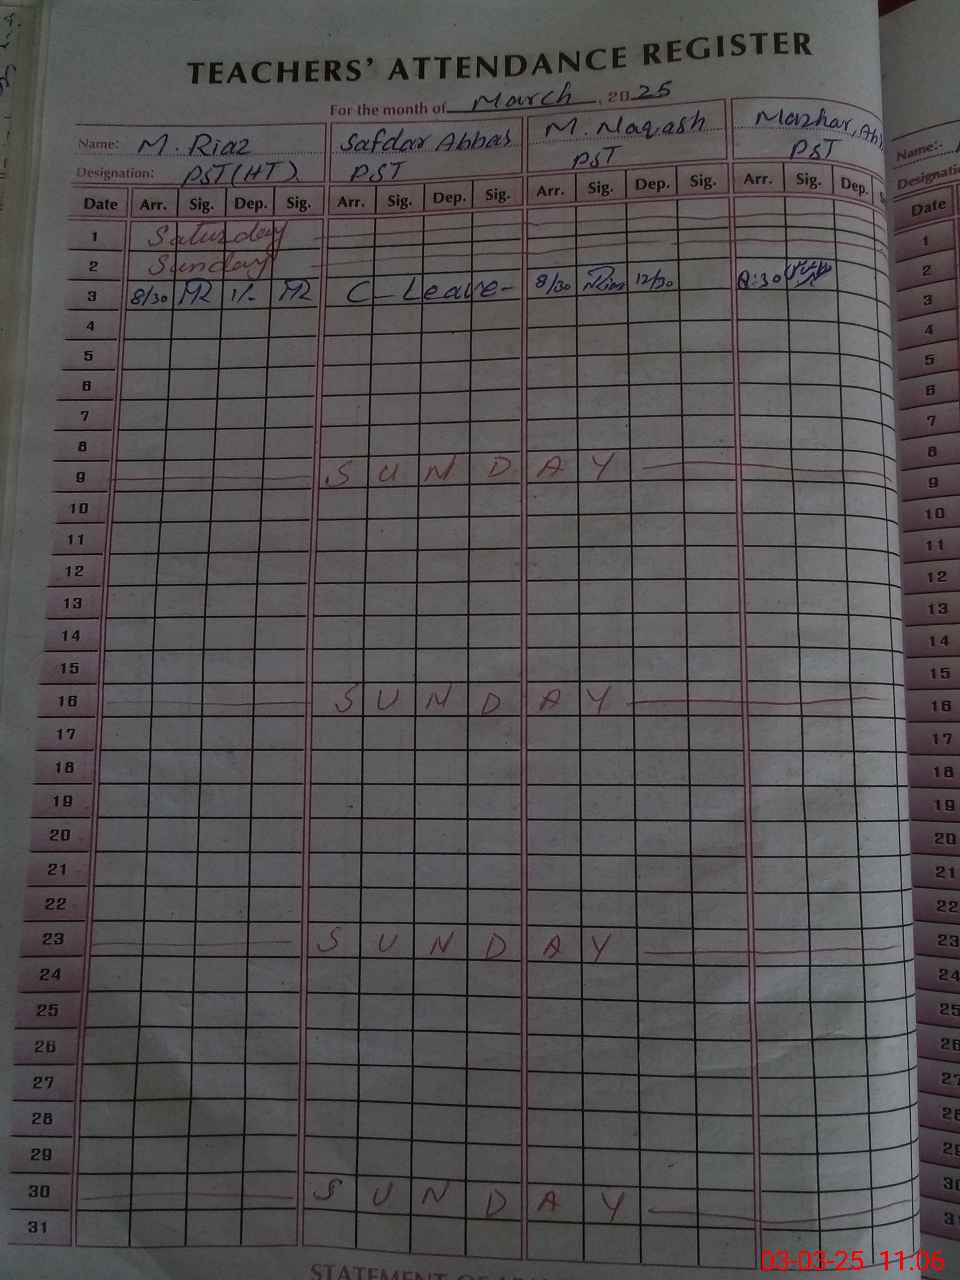 TEACHERS' ATTENDANCE REGISTER
For the month of March, 2025
Name: M. Riaz Safdar Abbas M. Naqash Mazhar, Name:-
Designation: PST(HT) PST PST PST
Date Arr. Sig. Dep. Sig. Arr. Sig. Dep. Sig. Arr. Sig. Dep. Sig. Arr. Sig. Dep. Date
1 Saturday 1
2 Sunday 2
3 8/30 1/- C-Leave- 8/30 12/30 8:30 3
4 4
5 5
6 6
7 7
8 8
9 SUNDAY 9
10 10
11 11
12 12
13 13
14 14
15 15
16 SUNDAY 16
17 17
18 18
19 19
20 20
21 21
22 22
23 SUNDAY 23
24 24
25 25
26 26
27 27
28 28
29 29
30 SUNDAY 30
31
03-03-25 11:06